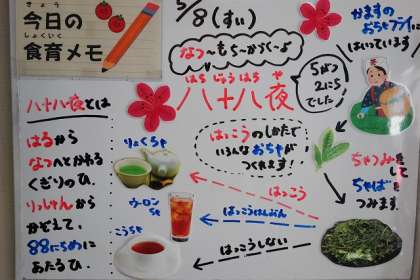 きょう
今日の
しょくいく
食育メモ
5/8(すい)
なつ〜もち〜かづく〜よ
はちじゅうはちや
八十八夜
5がつ
2にち
でした
かきあげの
おちゃフライに
はいっています
八十八夜とは
はるから
なつへとかわる
くぎりのひ。
りっしゅんから
かぞえて、
88にちめに
あたるひ。
はっこうのしかたで
いろんなおちゃが
つくれます!
りょくちゃ
ウーロン
ちゃ
こうちゃ
はっこう
はっこうはんぶん
はっこうしない
ちゃつみをして
ちゃばを
つみます。